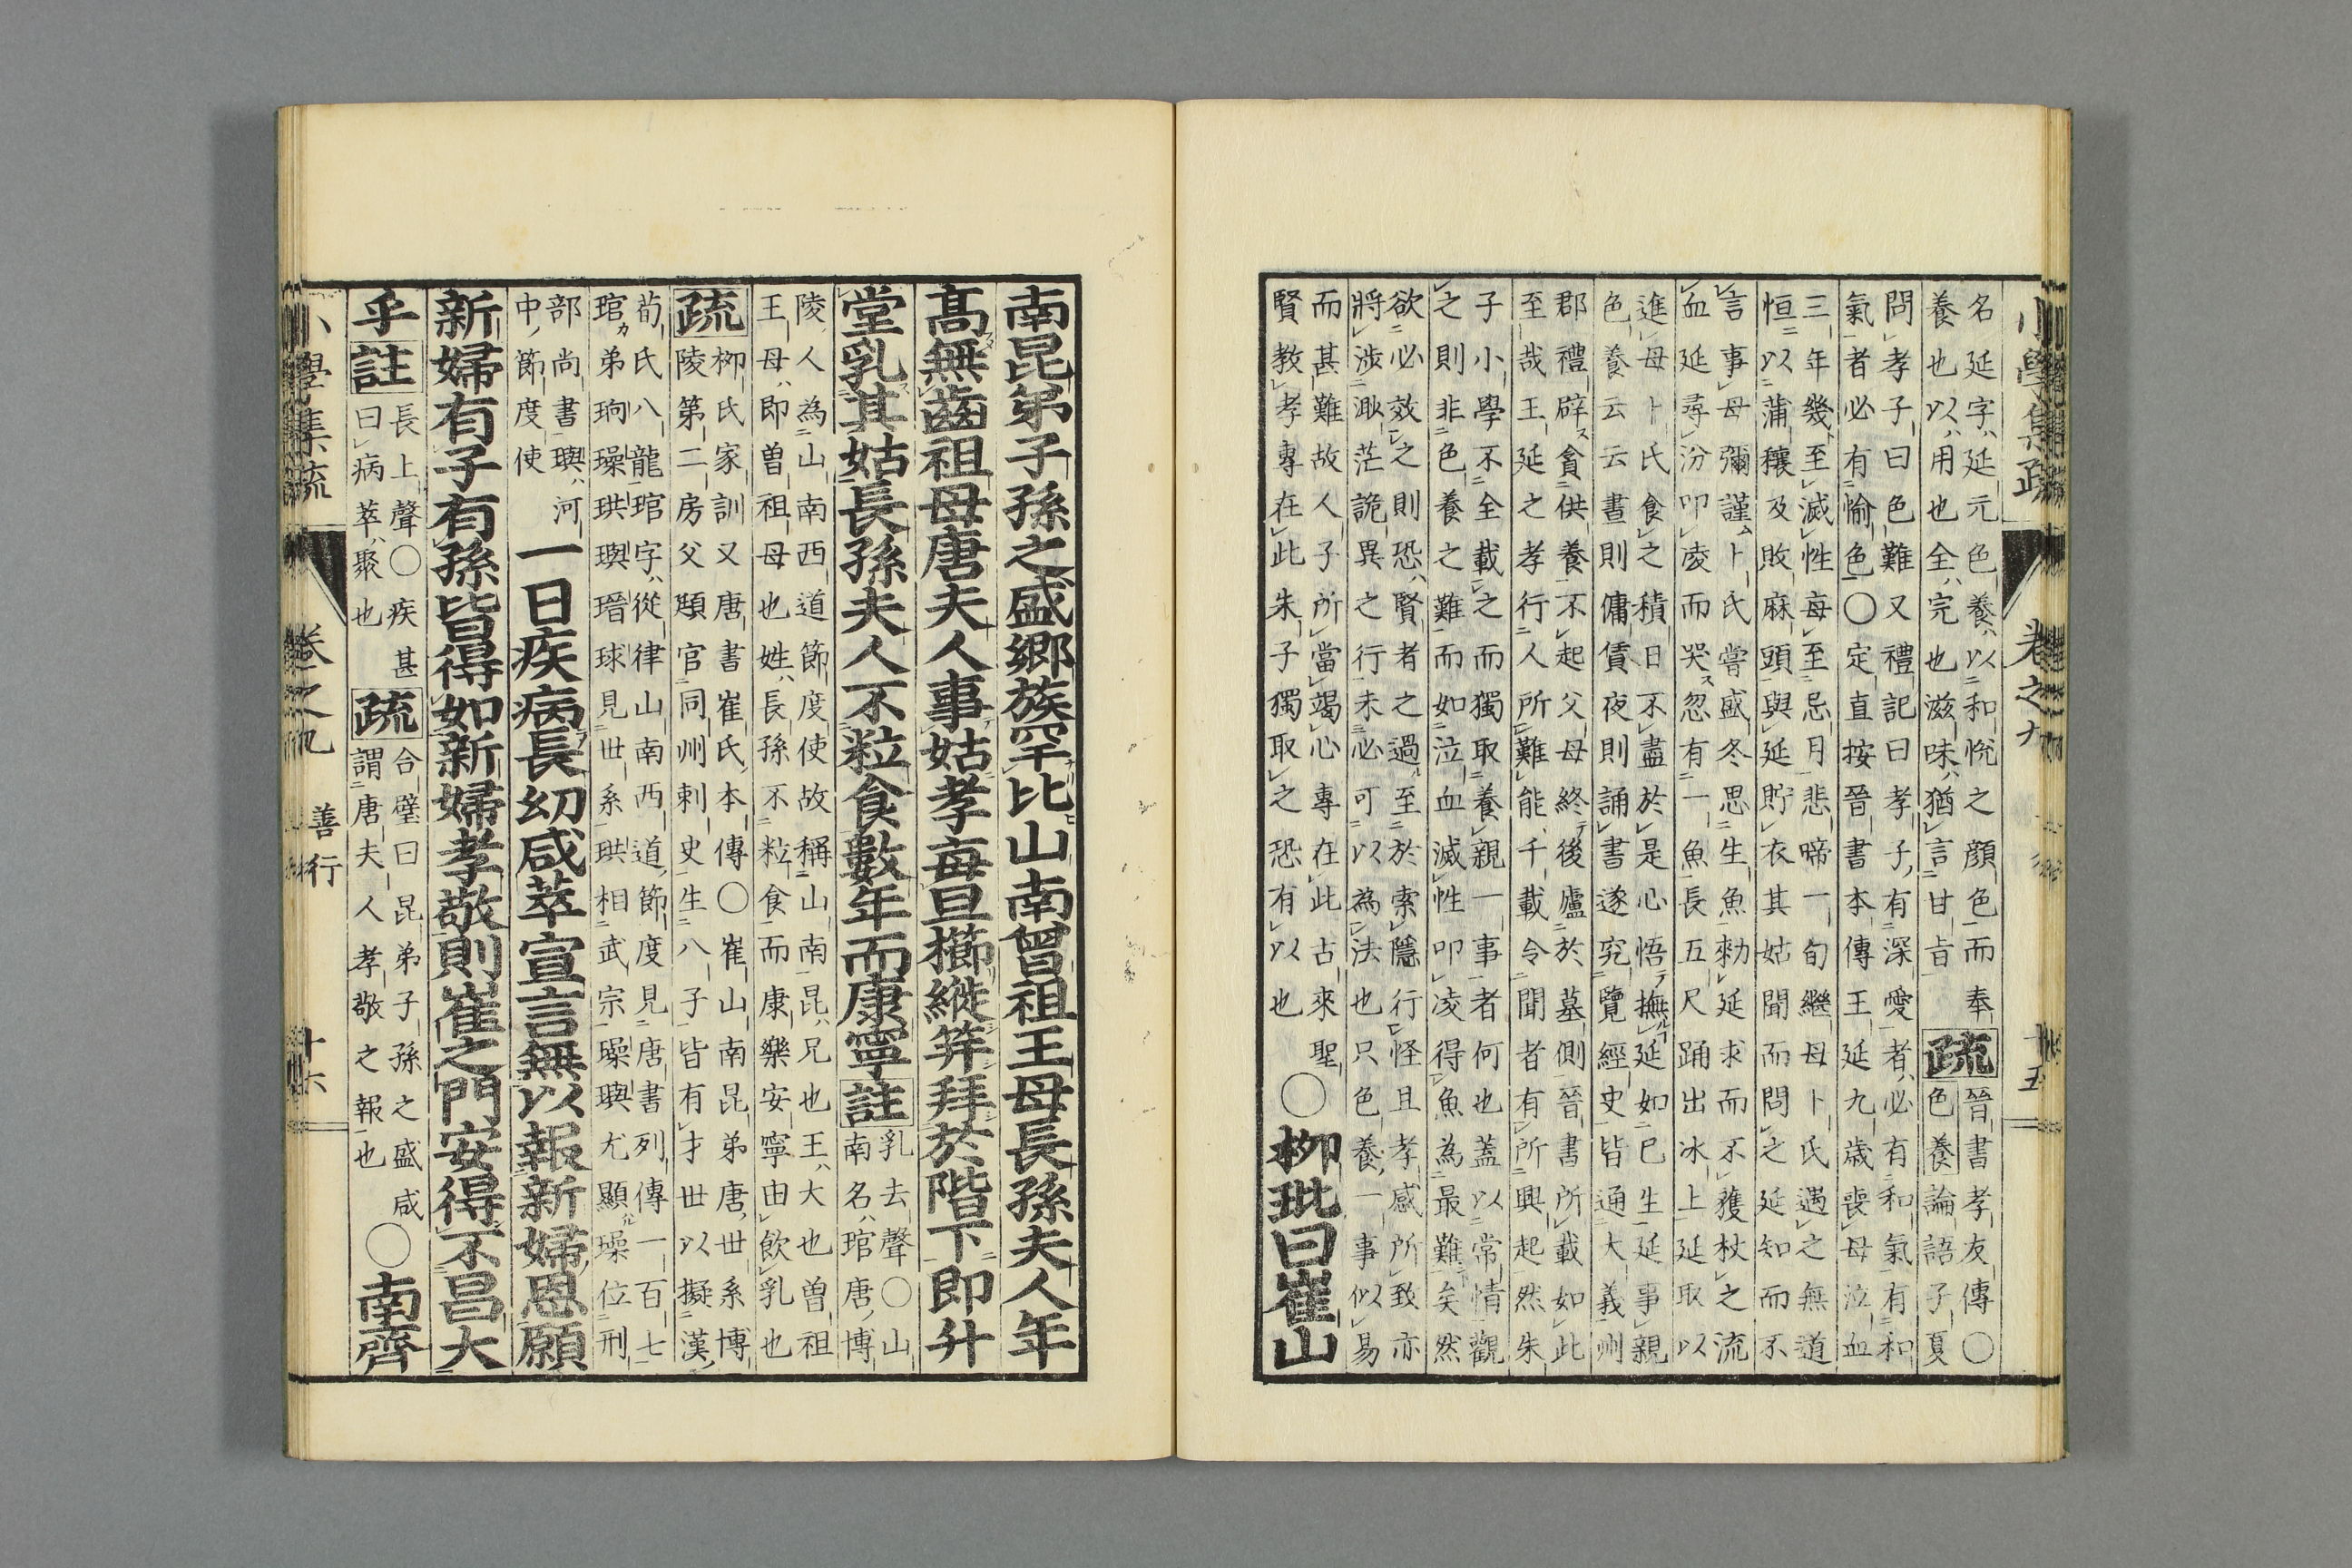 小學集疏　卷之九　十五
名延字延元色養以和悅之顔色而奉
養也以用也全完也滋味猶言甘旨
疏
晉書孝友傳〇
色養論語子夏
問孝子曰色難又禮記曰孝子有深愛者必有和氣有和
氣者必有愉色〇定直按晉書本傳王延九歳喪母泣血
三年幾至滅性每至忌月悲啼一旬繼母卜氏遇之無道
恒以蒲穰及敗麻頭與延貯衣其姑聞而問之延知而不
言事母彌謹卜氏嘗盛冬思生魚勑延求而不獲杖之流
血延尋汾叩凌而哭忽有一魚長五尺踊出冰上延取以
進母卜氏食之積日不盡於是心悟撫延如己生延事親
色養云云晝則傭賃夜則誦書遂究覽經史皆通大義州
郡禮辟貪供養不起父母終後廬於墓側晉書所載如此
至哉王延之孝行人所難能千載令聞者有所興起然朱
子小學不全載之而獨取養親一事者何也蓋以常情觀
之則非色養之難而如泣血滅性叩凌得魚為最難矣然
欲必效之則恐賢者之過至於索隱行怪且孝感所致亦
將涉渺茫詭異之行未必可以為法也只色養一事似易
而甚難故人子所當竭心專在此古來聖
賢教孝專在此朱子獨取之恐有以也
〇柳玭曰崔山
南昆弟子孫之盛鄉族罕比山南曾祖王母長孫夫人年
高無齒祖母唐夫人事姑孝每旦櫛縰笄拜於階下即升
堂乳其姑長孫夫人不粒食數年而康寧註
乳去聲〇山
南名琯唐博
陵人為山南西道節度使故稱山南昆兄也王大也曽祖
王母即曽祖母也姓長孫不粒食而康樂安寧由飲乳也
疏
柳氏家訓又唐書崔氏本傳〇崔山南昆弟唐世系博
陵第二房父頲官同州刺史生八子皆有才世以擬漢
荀氏八龍琯字從律山南西道節度見唐書列傳一百七
琯弟珦璪珙璵瑨球見世系珙相武宗璪璵尤顯璪位刑
部尚書璵河
中節度使
一日疾病長幼咸萃宣言無以報新婦恩願
新婦有子有孫皆得如新婦孝敬則崔之門安得不昌大
乎註
長上聲〇疾甚
曰病萃聚也
疏
合璧曰昆弟子孫之盛咸
謂唐夫人孝敬之報也
〇南齊
小學集疏　卷之九　善行　十六